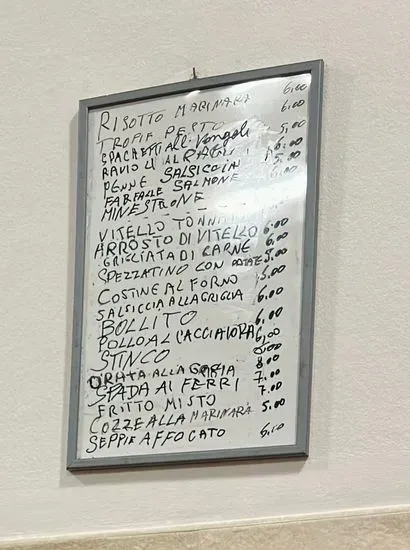 RISOTTO MARINARA 6,00
TROFIE PESTO 6,00
SPAGHETTI alle Vongole
RAVIOLI AL RAGÙ 5,00
PENNE SALSICCIA 6,00
FARFALLE SALMONE 5,00
MINESTRONE 6,00
VITELLO TONNATO
ARROSTO DI VITELLO 6,00
GRIGLIATA DI CARNE 6,00
SPEZZATINO CON PATATE 5,00
COSTINE AL FORNO 5,00
SALSICCIA ALLA GRIGLIA 6,00
BOLLITO
POLLO AL CACCIATORA 6,00
STINCO 6,00
ORATA ALLA GRIGLIA 8,00
SPADA AI FERRI 7,00
FRITTO MISTO 7,00
COZZE ALLA MARINARA 5,00
SEPPIE AFFOCATO 6,00